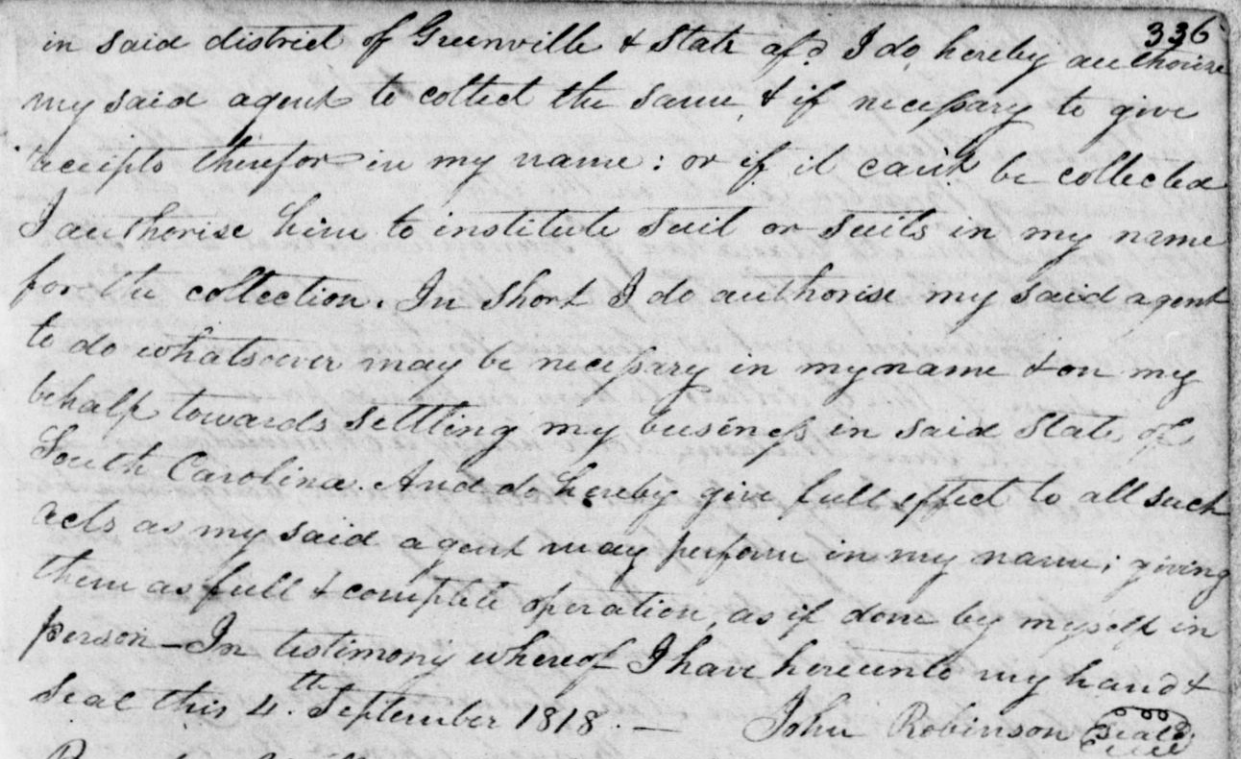 336
in said district of Greenville & State afd I do hereby authorize
my said agent to collect the same, & if necessary to give
receipts therefor in my name: or if it can't be collected
I authorise him to institute suit or suits in my name
for the collection. In short I do authorise my said agent
to do whatsoever may be necessary in my name & on my
behalf towards settling my business in said State of
South Carolina. And do hereby give full effect to all such
acts as my said agent may perform in my name; giving
them as full & complete operation, as if done by myself in
person — In testimony whereof I have hereunto my hand &
Seal this 4th September 1818. — John Robinson Seal